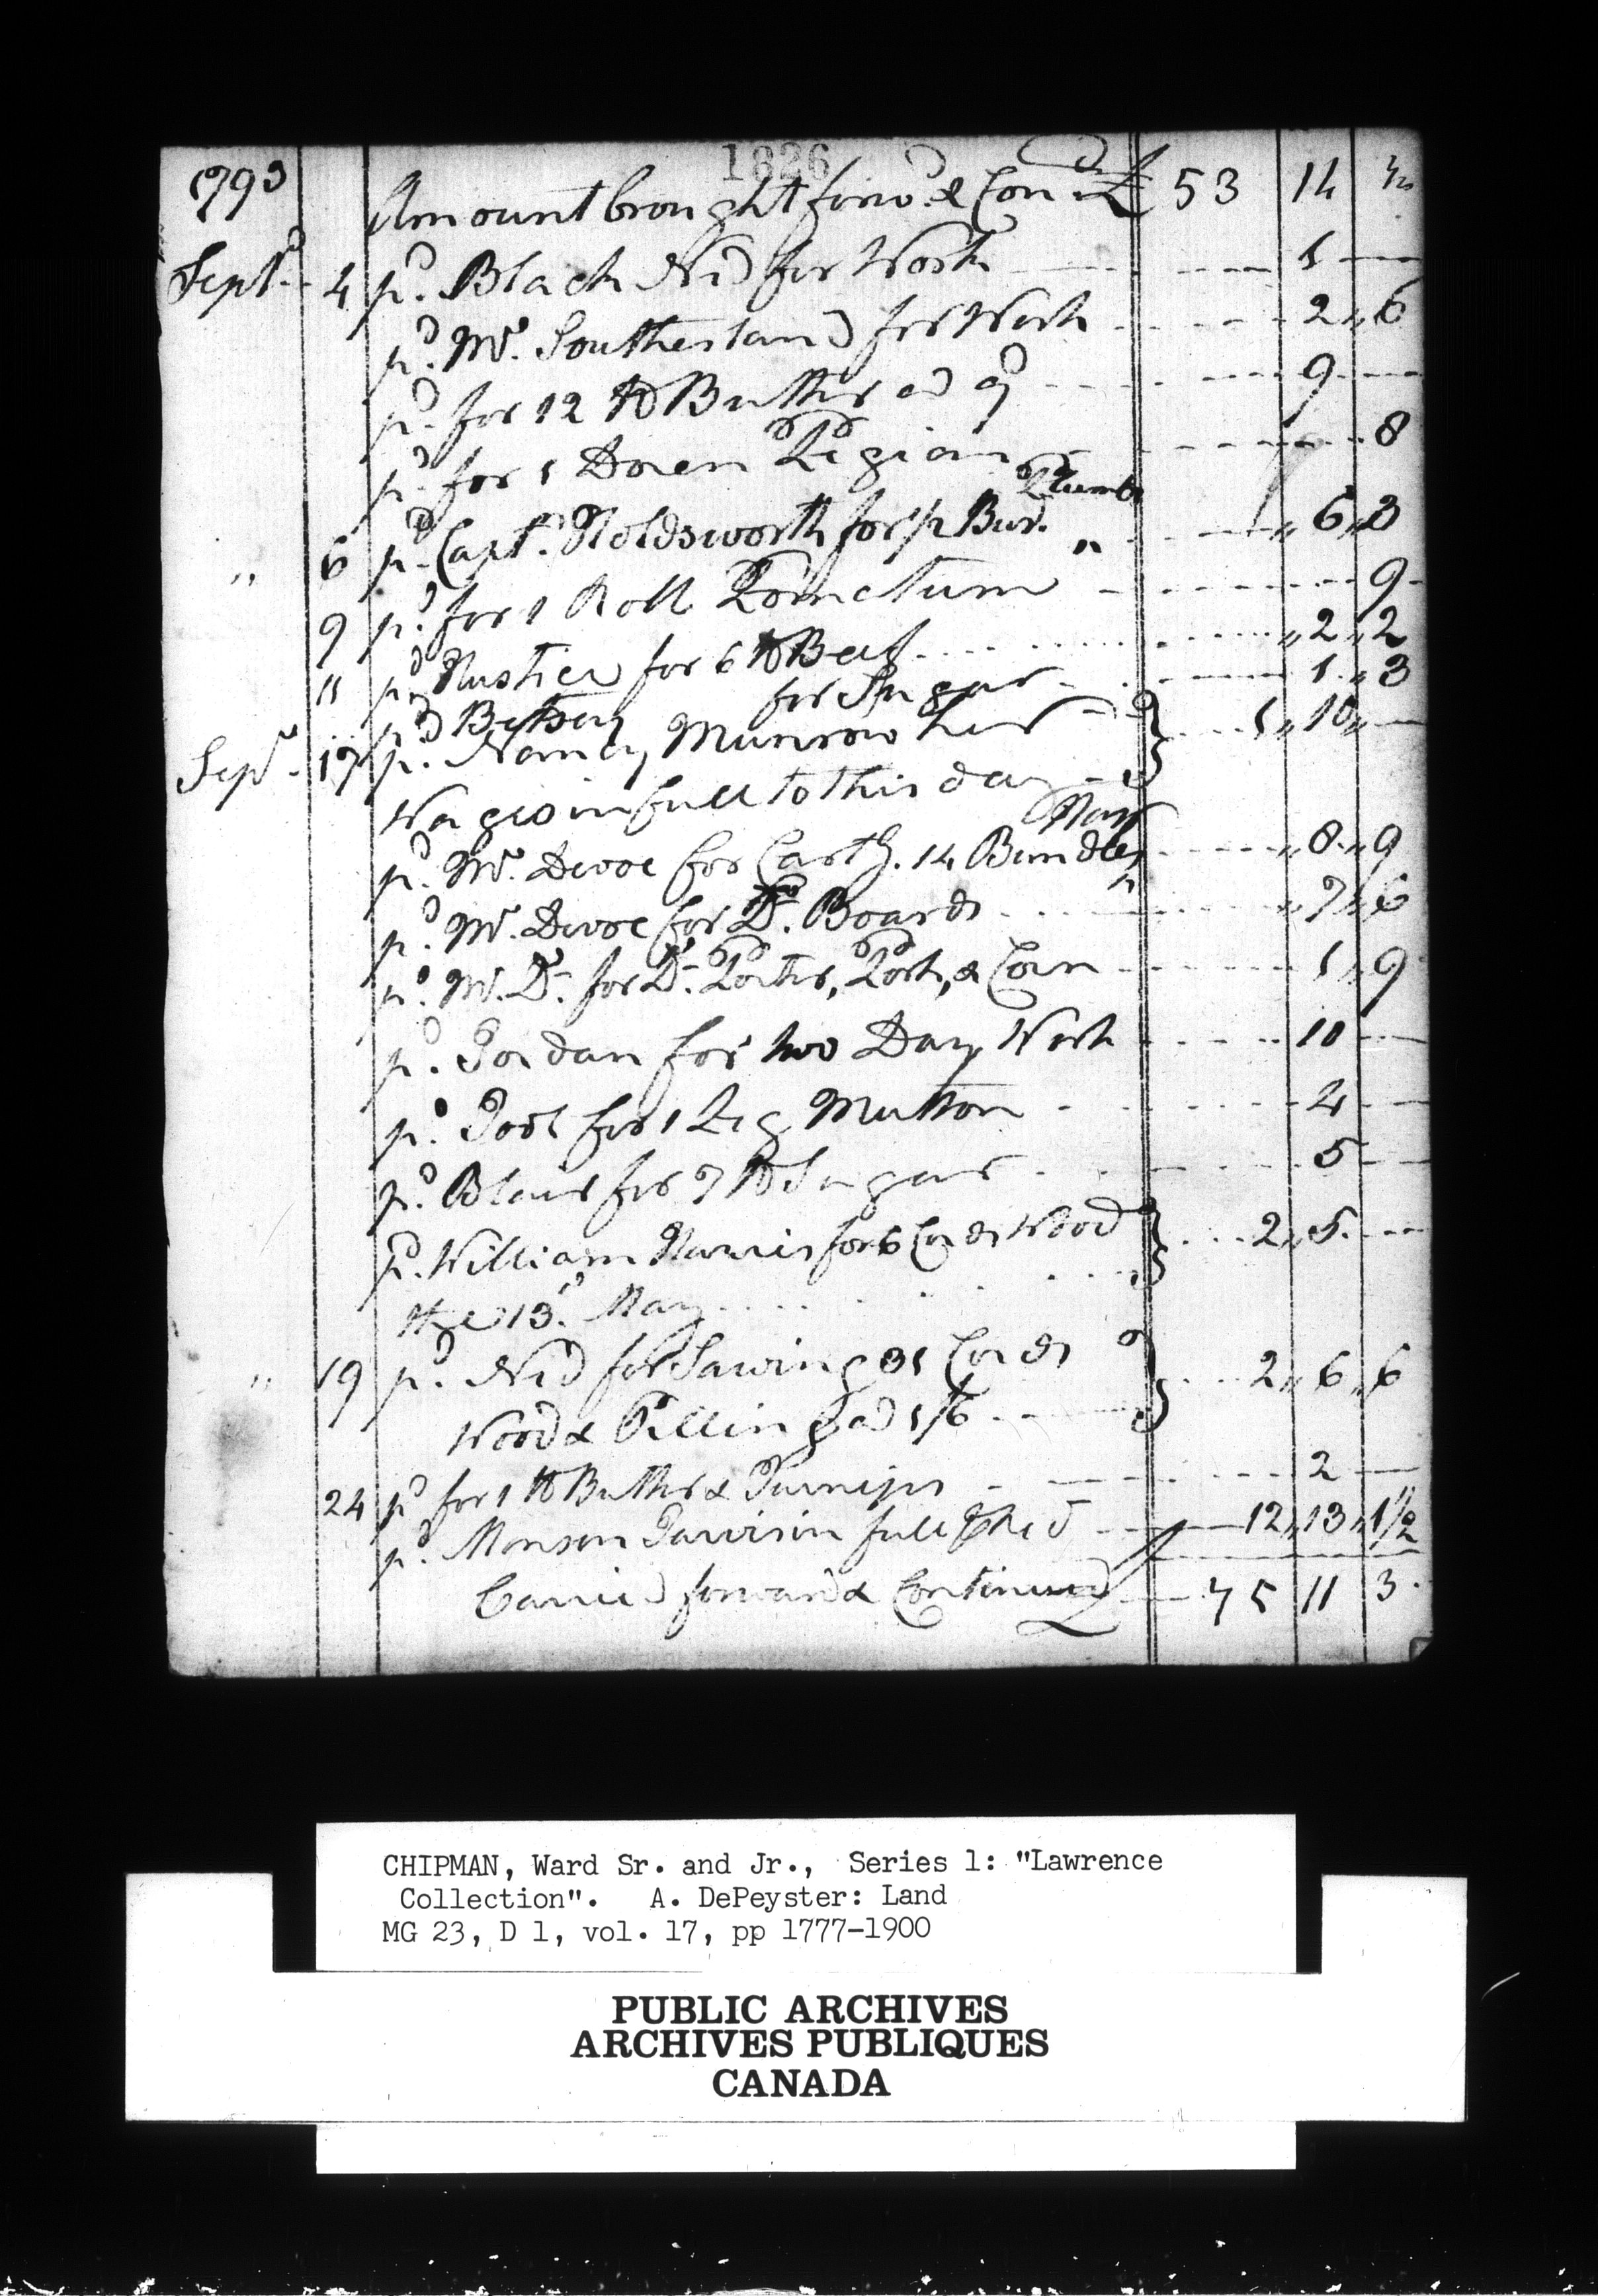 1826
1793 Amount brought forwd. & Cond. £ 53 14 ½
Sepr. 4 pd. Black Ned for Work 5
pd. Mr. Southerland for Work 2 " 6
pd. for 12 lb Butter ad 9d 9
pd. for 1 Dozen Pigions 8
Plumbs
" 6 pd. Capt. Holdsworth for ½ Bus. " " 6 " 3
9 pd. for 1 Roll Pomctum 9
11 pd. Hustice for 6 lb Beef " 2 " 2
pd. Betsey for Sugar 1 " 3
Sepr. 17 pd. Nancy Munrow her 1 " 10 "
Wages in full to this day
Hay
pd. Mr. Devoe for Cartg. 14 Bundles " 8 " 9
pd. Mr. Devoe for Do. Boards " 7 " 6
pd. Mr. D. for Do. Porter, Pork, & Corn 1 " 9
pd. Jordan for two Days Work 10
pd. for 1 Leg Mutton 2
pd. Blair for 7 lb Sugar 5
pd. William Harris for 6 Cords Wood 2 " 5
the 13th. May
" 19 pd. Ned for Sawing 31 Cords 2 " 6 " 6
Wood & Pilling ad 1/6
24 pd. for 1 lb Butter & Turnips 2
pd. Monson Jarvis in full 12 " 13 " 1½
Carried forward & Continued £ 75 11 3
CHIPMAN, Ward Sr. and Jr., Series 1: "Lawrence
Collection". A. DePeyster: Land
MG 23, D 1, vol. 17, pp 1777-1900
PUBLIC ARCHIVES
ARCHIVES PUBLIQUES
CANADA